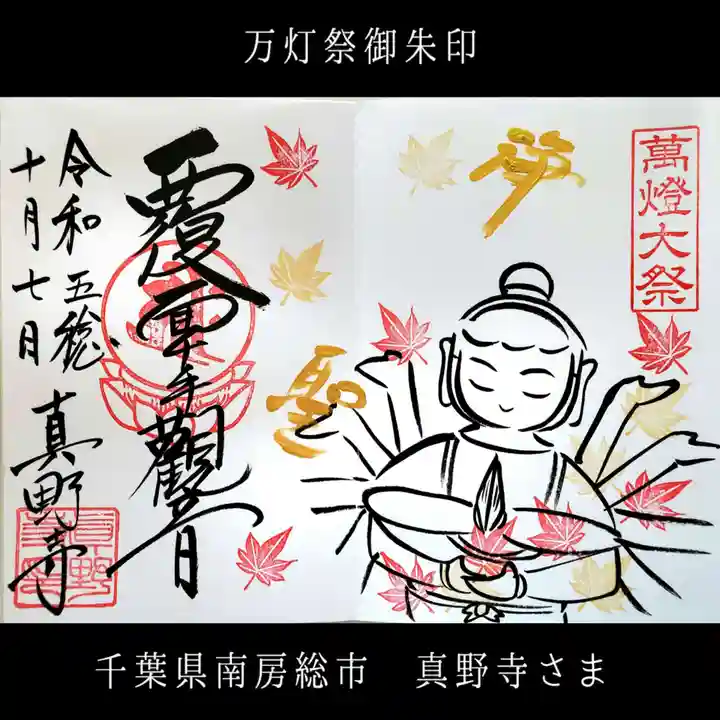 万灯祭御朱印
萬燈大祭
夢
聖
覆面千手観音
令和五稔
十月七日
真野寺
千葉県南房総市 真野寺さま